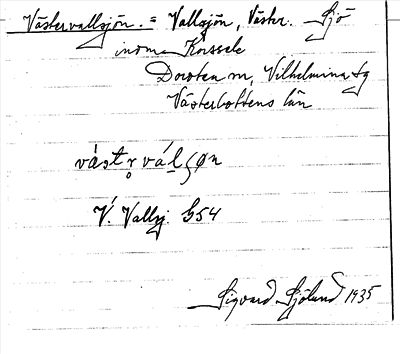 Västervallsjön. = Vallsjön, Väster. Sjö
inom Korssele
Dorotea m, Vilhelmina tg
Västerbottens län
vástr̥váḷʂøn
V. Vallsj. G54
Sigvard Sjölund 1935